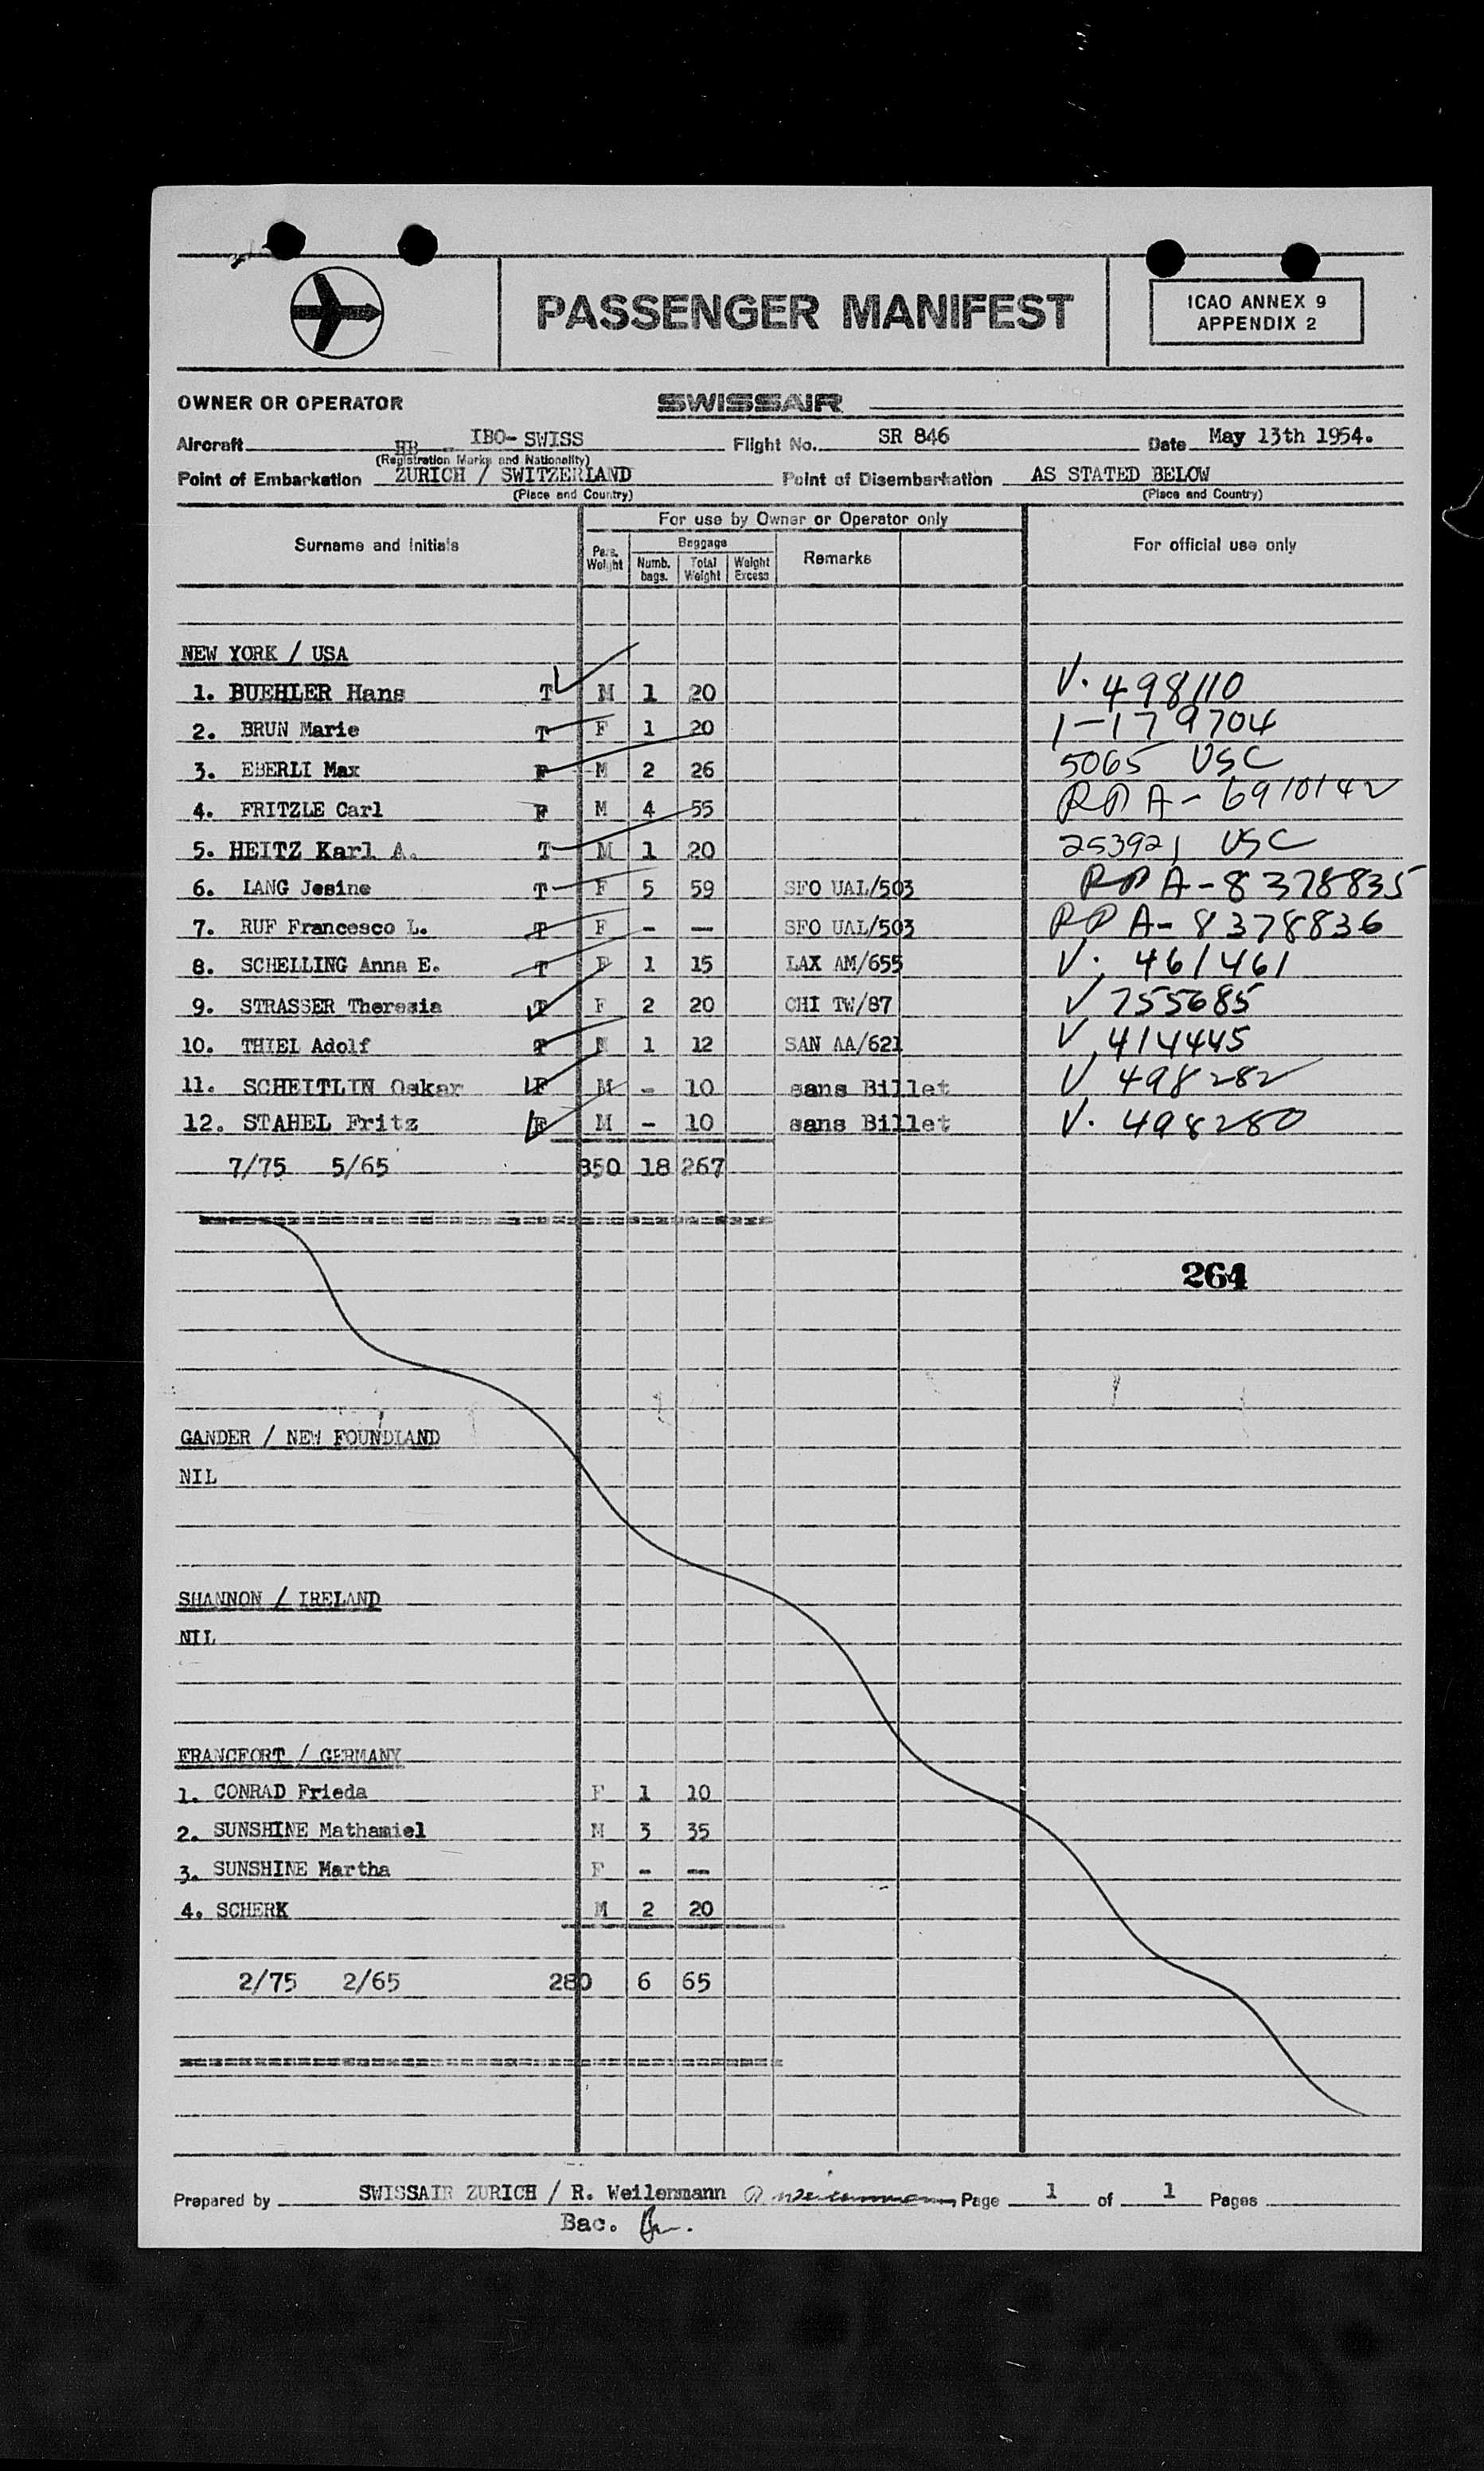 PASSENGER MANIFEST
ICAO ANNEX 9
APPENDIX 2
OWNER OR OPERATOR SWISSAIR
Aircraft HB - IBO- SWISS Flight No. SR 846 Date May 13th 1954.
(Registration Marks and Nationality)
Point of Embarkation ZURICH / SWITZERLAND Point of Disembarkation AS STATED BELOW
(Place and Country) (Place and Country)
For use by Owner or Operator only
Surname and initials Pass. Weight Baggage Numb. bags. Total Weight Weight Excess Remarks For official use only
NEW YORK / USA
1. BUEHLER Hans T M 1 20 V. 498110
2. BRUN Marie T F 1 20 1-179704
3. EBERLI Max F M 2 26 5065 USC
4. FRITZLE Carl F M 4 55 RP A-6910142
5. HEITZ Karl A. T M 1 20 253921 USC
6. LANG Jesine T F 5 59 SFO UAL/503 RP A-8378835
7. RUF Francesco L. T F - -- SFO UAL/503 RP A-8378836
8. SCHELLING Anna E. T F 1 15 LAX AM/655 V. 461461
9. STRASSER Theresia T F 2 20 CHI TW/87 V 755685
10. THIEL Adolf T M 1 12 SAN AA/621 V 414445
11. SCHEITLIN Oskar F M - 10 sans Billet V 498282
12. STAHEL Fritz F M - 10 sans Billet V. 498280
7/75 5/65 850 18 267
264
GANDER / NEW FOUNDLAND
NIL
SHANNON / IRELAND
NIL
FRANCFORT / GERMANY
1. CONRAD Frieda F 1 10
2. SUNSHINE Mathamiel M 3 35
3. SUNSHINE Martha F - --
4. SCHERK M 2 20
2/75 2/65 280 6 65
Prepared by SWISSAIR ZURICH / R. Weilenmann R Weilenmann Page 1 of 1 Pages
Bac.